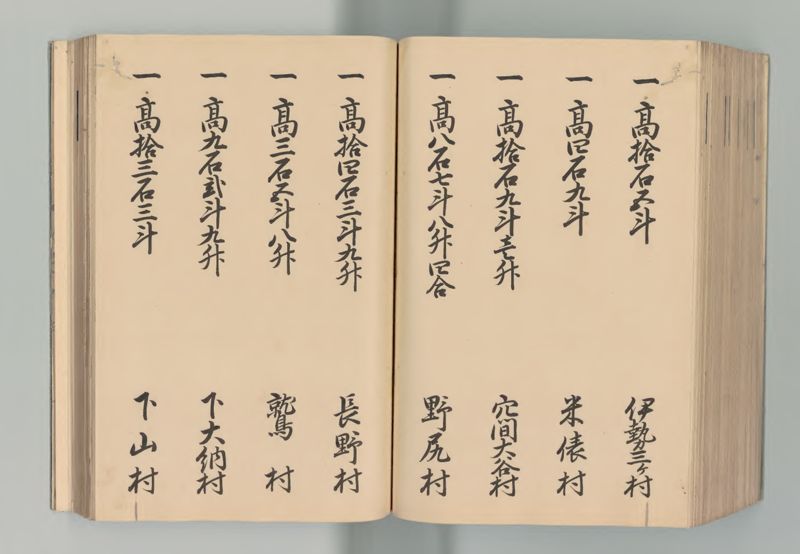 一高拾石五斗 伊勢三ケ村
一高四石九斗 米俵村
一高拾石九斗壱升 穴間大谷村
一高八石七斗八升四合 野尻村
一高拾四石三斗九升 長野村
一高三石五斗八升 鷲村
一高九石弐斗九升 下大納村
一高拾三石三斗 下山村